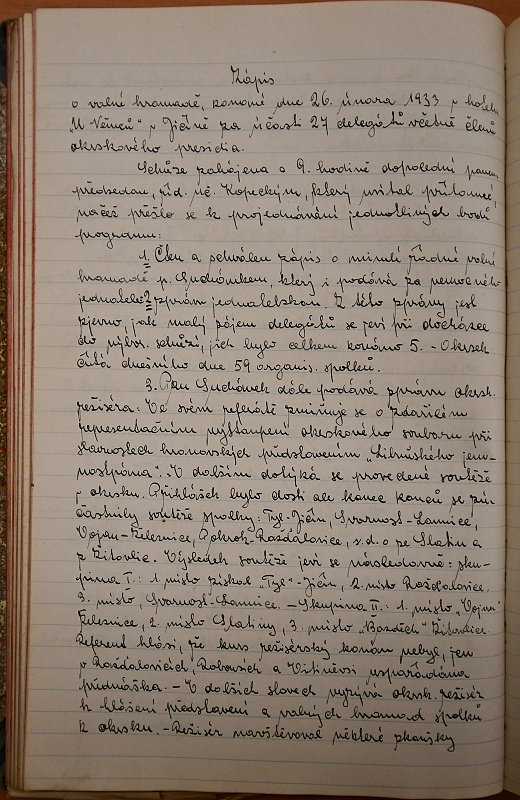 Zápis
o valné hromadě, konané dne 26. února 1933 v hotelu
"U Němců" v Jičíně za účasti 27 delegátů včetně členů
okrskového presidia.
Schůze zahájena o 9. hodině dopolední panem
předsedou, říd. uč. Kopeckým, který uvítal přítomné,
načež přešlo se k projednávání jednotlivých bodů
programu:
1. Čten a schválen zápis o minulé řádné valné
hromadě p. Suchánkem, který i podává za nemocného
jednatele 2. zprávu jednatelskou. Z této zprávy jest
zjevno, jak malý zájem delegátů se jeví při docházce
do výbor. schůzí, jich bylo celkem konáno 5. - Okrsek
čítá dnešního dne 59 organis. spolků.
3. Pan Suchánek dále podává zprávu okrsk.
režiséra: Ve svém referátě zmiňuje se o zdařilém
representačním vystoupení okrskového souboru při
slavnostech hronovských představením "Libuňského jem-
nostpána". V dalším dotýká se provedené soutěže
v okrsku. Přihlášek bylo dosti ale konec konců se zú-
častnily soutěže spolky: Tyl-Jičín, Svornost-Lomnice,
Vojan-Železnice, Pokrok-Rožďalovice, s.d.o ze Slatin a
z Žitovlic. Výsledek soutěže jeví se následovně: sku-
pina I.: 1. místo získal "Tyl"-Jičín, 2. místo Rožďalovice,
3. místo, Svornost-Lomnice. - Skupina II.: 1. místo "Vojan"
Železnice, 2. místo Slatiny, 3. místo "Bozděch" Žitovlice.
Referent hlásí, že kurs režisérský konán nebyl, jen
v Rožďalovicích, Robousích a Vitiněvsi uspořádána
přednáška. - V dalších slovech vyzývá okrsk. režisér
k hlášení představení a valných hromad spolků
k okrsku. - Režisér navštěvoval některé zkoušky